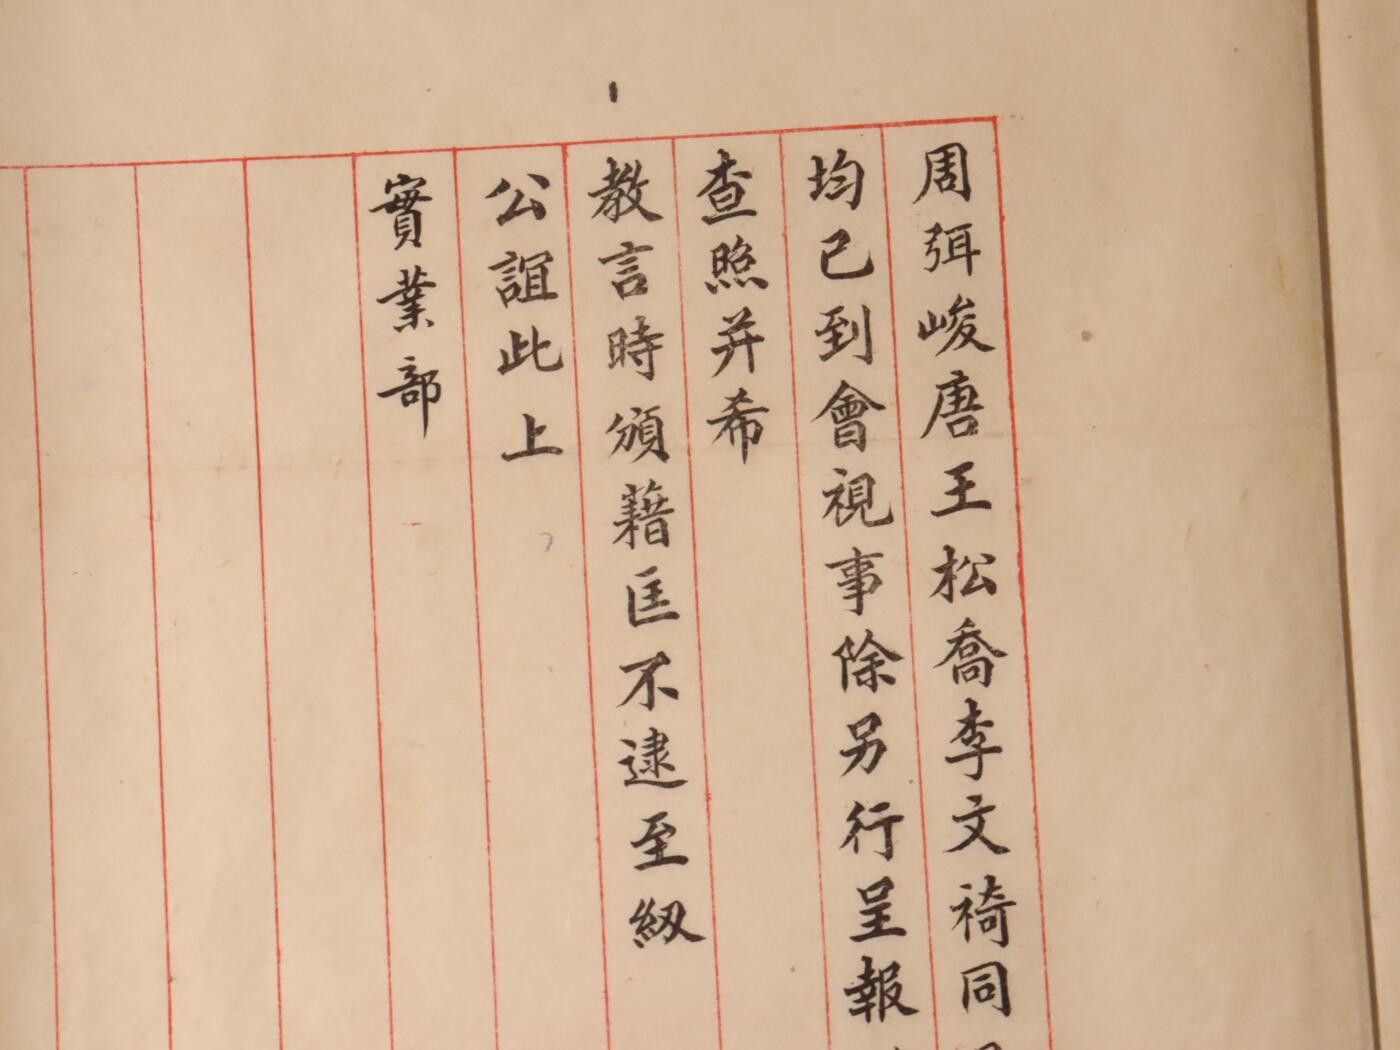 周弭峻唐王松喬李文裿同
均已到會視事除另行呈報
查照并希
教言時頒藉匡不逮至紉
公誼此上
實業部